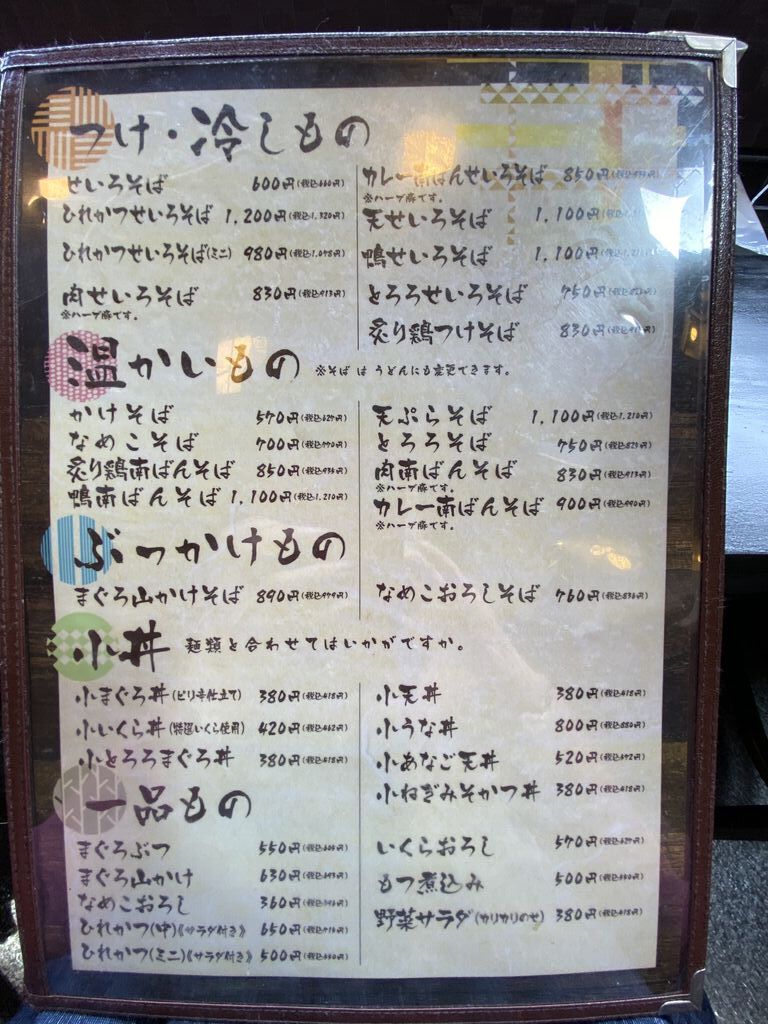 つけ・冷しもの
せいろそば 600円(税込660円)
ひれかつせいろそば 1,200円(税込1,320円)
ひれかつせいろそば(ミニ) 980円(税込1,078円)
肉せいろそば 830円(税込913円)
※ハーブ豚です。
カレー南ばんせいろそば 850円
※ハーブ豚です。
天せいろそば 1,100円
鴨せいろそば 1,100円
とろろせいろそば 750円
炙り鶏つけそば 830円
温かいもの ※そばはうどんにも変更できます。
かけそば 570円(税込627円)
なめこそば 700円(税込770円)
炙り鶏南ばんそば 850円(税込935円)
鴨南ばんそば 1,100円(税込1,210円)
天ぷらそば 1,100円(税込1,210円)
とろろそば 750円(税込825円)
肉南ばんそば 830円(税込913円)
※ハーブ豚です。
カレー南ばんそば 900円(税込990円)
※ハーブ豚です。
ぶっかけもの
まぐろ山かけそば 890円(税込979円)
なめこおろしそば 760円(税込836円)
小丼 麺類と合わせてはいかがですか。
小まぐろ丼(ピリ辛仕立て) 380円(税込418円)
小いくら丼(特選いくら使用) 420円(税込462円)
小とろろまぐろ丼 380円(税込418円)
小天丼 380円(税込418円)
小うな丼 800円(税込880円)
小あなご天丼 520円(税込572円)
小ねぎみそかつ丼 380円(税込418円)
一品もの
まぐろぶつ 550円(税込605円)
まぐろ山かけ 630円(税込693円)
なめこおろし 360円(税込396円)
ひれかつ(中)《サラダ付き》 650円(税込715円)
ひれかつ(ミニ)《サラダ付き》 500円(税込550円)
いくらおろし 570円(税込627円)
もつ煮込み 500円(税込550円)
野菜サラダ(カリカリのせ) 380円(税込418円)